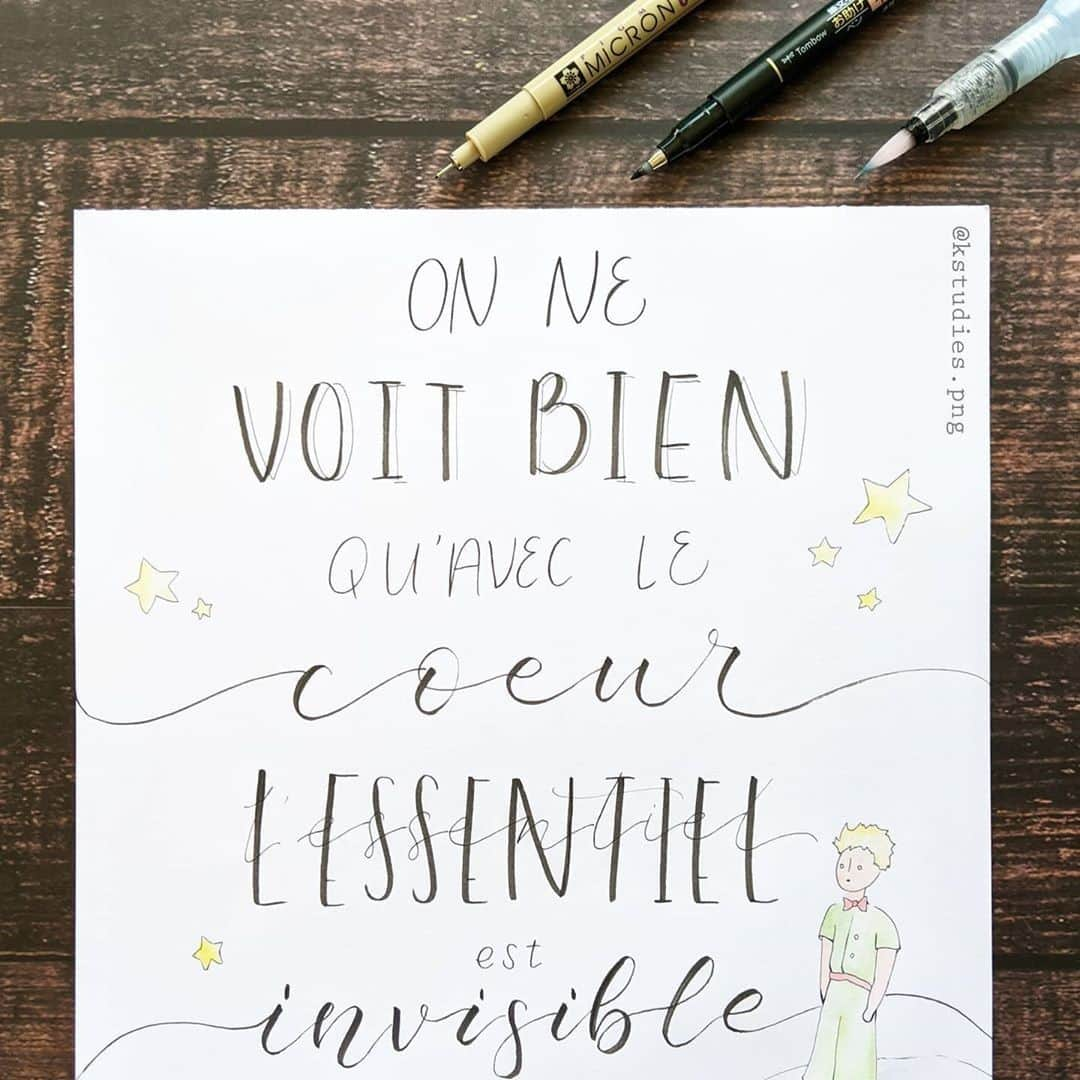 MICRON
Tombow
お助け
ペン
@kstudies.png
ON NE
VOIT BIEN
QU'AVEC LE
coeur
L'ESSENTIEL
l'essentiel
est
invisible